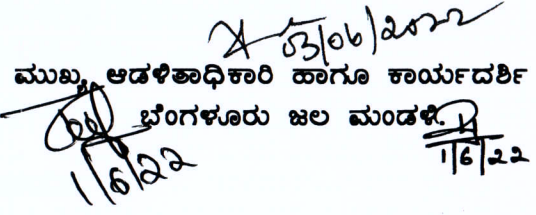 03/06/2022
ಮುಖ್ಯ ಆಡಳಿತಾಧಿಕಾರಿ ಹಾಗೂ ಕಾರ್ಯದರ್ಶಿ
ಬೆಂಗಳೂರು ಜಲ ಮಂಡಳಿ.
1/6/22
1/6/22